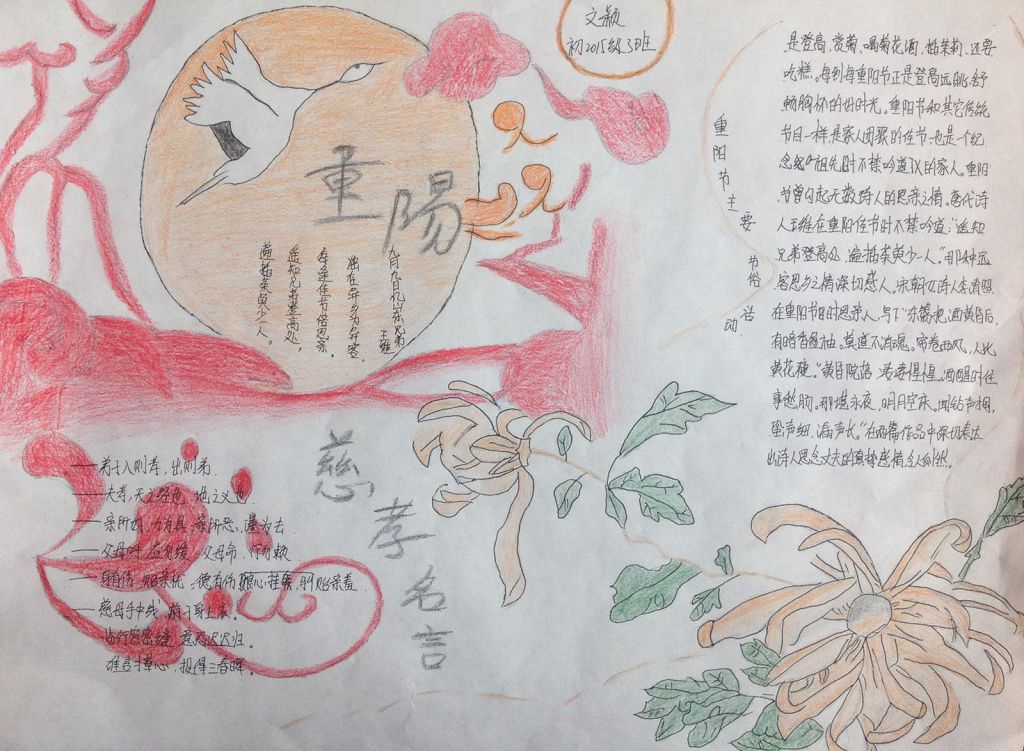 文颖
初2015级3班
重陽
九月九日忆山东兄弟
王维
独在异乡为异客，
每逢佳节倍思亲。
遥知兄弟登高处，
遍插茱萸少一人。
重阳节主要节俗活动
是登高、赏菊、喝菊花酒、插茱萸、还要
吃糕。每到每重阳节正是登高远眺，舒
畅胸怀的好时光。重阳节和其它传统
节目一样，是家人团聚的佳节，也是一个纪
念祖先时不禁吟道的家人。重阳
节曾勾起无数诗人的思亲之情。唐代诗
人王维在重阳佳节时不禁吟道：“遥知
兄弟登高处，遍插茱萸少一人。”那种远
客思乡之情深切感人。宋朝女诗人李清照
在重阳节时思亲人，写下“东篱把酒黄昏后，
有暗香盈袖。莫道不消魂。帘卷西风，人比
黄花瘦。”“黄昏院落，凄凄惶惶，酒醒时往
事愁肠。那堪永夜，明月空床。闻砧声捣，
蛩声细，漏声长。”在两篇作品中深切表达
出诗人思念丈夫的真挚感情，令人
慈孝名言
弟子入则孝，出则弟
大孝，天之经也，地之义也
亲所好，力为具，亲所恶，谨为去
父母呼，应勿缓，父母命，行勿懒
身有伤，贻亲忧，德有伤，贻亲羞
慈母手中线，游子身上衣。
临行密密缝，意恐迟迟归。
谁言寸草心，报得三春晖。